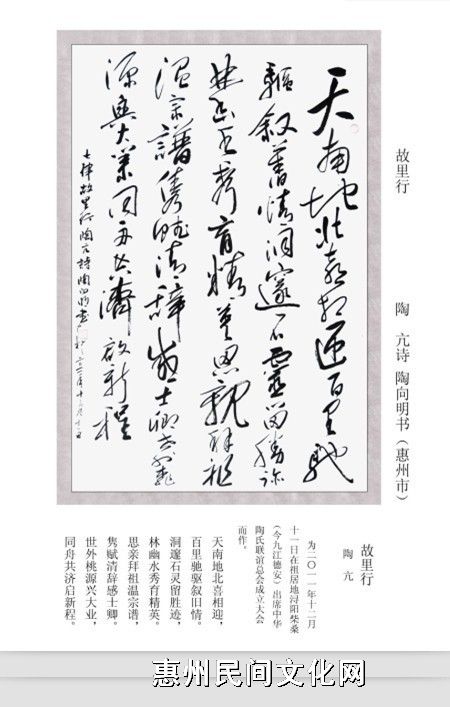 故里行 陶 亢诗 陶向明书（惠州市）
天南地北喜相迎百里馳
驅叙舊情洞邃石靈留勝迹
林幽水秀育精英思親拜祖
温宗譜隽賦清辭感士卿世外桃
源興大業同舟共濟啟新程
七律故里行陶亢詩陶向明書
故里行
陶 亢
为二〇一一年十二月
十一日在祖居地浔阳柴桑
（今九江德安）出席中华
陶氏联谊总会成立大会
而作。
天南地北喜相迎，
百里驰驱叙旧情。
洞邃石灵留胜迹，
林幽水秀育精英。
思亲拜祖温宗谱，
隽赋清辞感士卿。
世外桃源兴大业，
同舟共济启新程。
惠州民间文化网